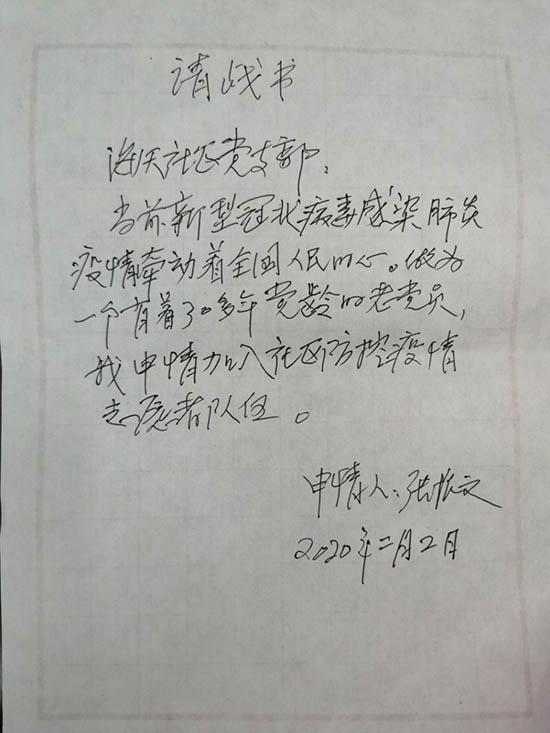 请战书
海天社区党支部：
当前新型冠状病毒感染肺炎
疫情牵动着全国人民的心。做为
一个有着30多年党龄的老党员，
我申请加入社区防控疫情
志愿者队伍。
申请人：张振文
2020年二月2日